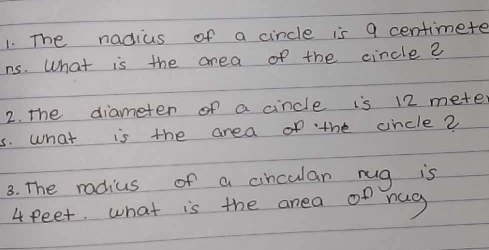 1. The radius of a circle is 9 centimete
rs. What is the area of the circle ?
2. The diameter of a circle is 12 meter
s. what is the area of the circle ?
3. The radius of a circular rug is
4 feet. what is the area of rug